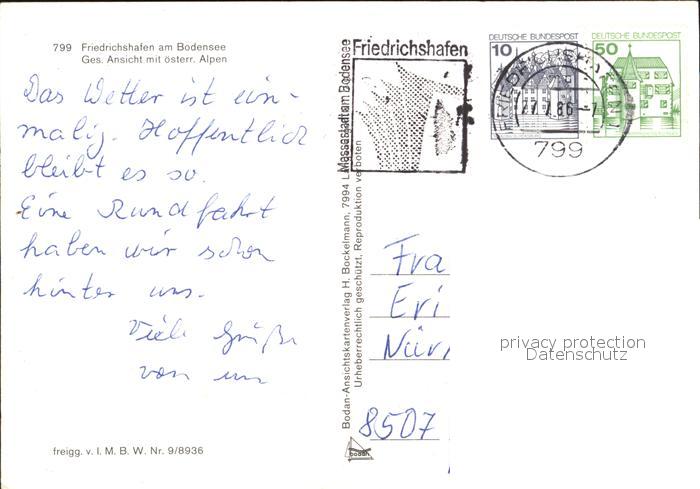 799 Friedrichshafen am Bodensee
Ges. Ansicht mit österr. Alpen
Das Wetter ist ein-
malig. Hoffentlich
bleibt es so.
Eine Rundfahrt
haben wir schon
hinter uns.
Viele Grüße
von
freigg. v. I. M. B. W. Nr. 9/8936
Bodan-Ansichtskartenverlag H. Bockelmann, 7994
Urheberrechtlich geschützt, Reproduktion verboten
bodan
Friedrichshafen
Messestadt am Bodensee
DEUTSCHE BUNDESPOST
10
DEUTSCHE BUNDESPOST
50
799
Fra
Eri
Nür
8507
privacy protection
Datenschutz